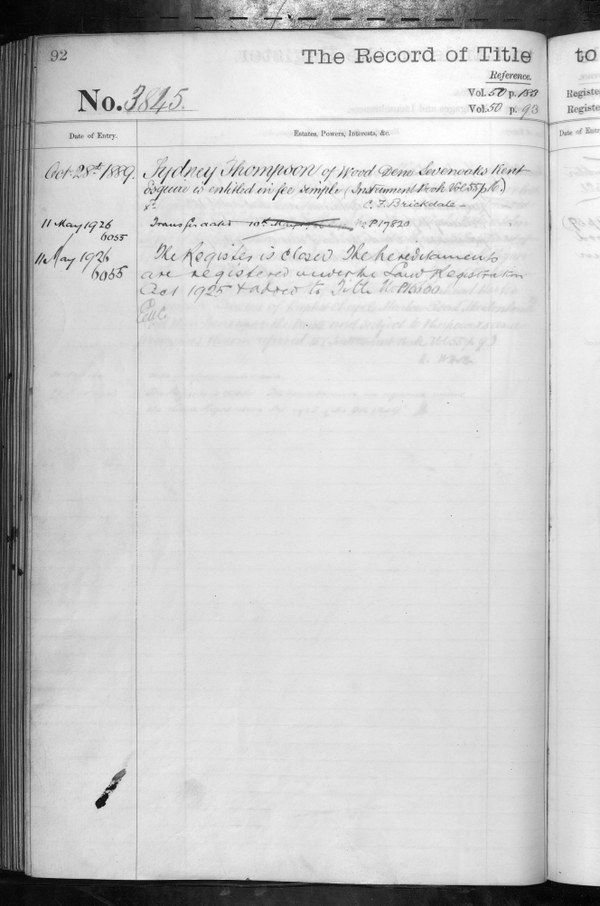 92
The Record of Title
to
Reference.
No. 3845.
Vol. 50 p. 183
Vol. 50 p. 93
Registe
Registe
Date of Entry.
Estates, Powers, Interests, &c.
Date of Entr
Oct 28th 1889. Sydney Thompson of Wood Dene Sevenoaks Kent
Esquire is entitled in fee simple (Instrument Book Vol. 55 p 16)
C. F. Brickdale
11 May 1926
6055
P17820
11 May 1926
6055
The Register is closed The hereditaments
are registered under the Land Registration
Act 1925 & added to Title